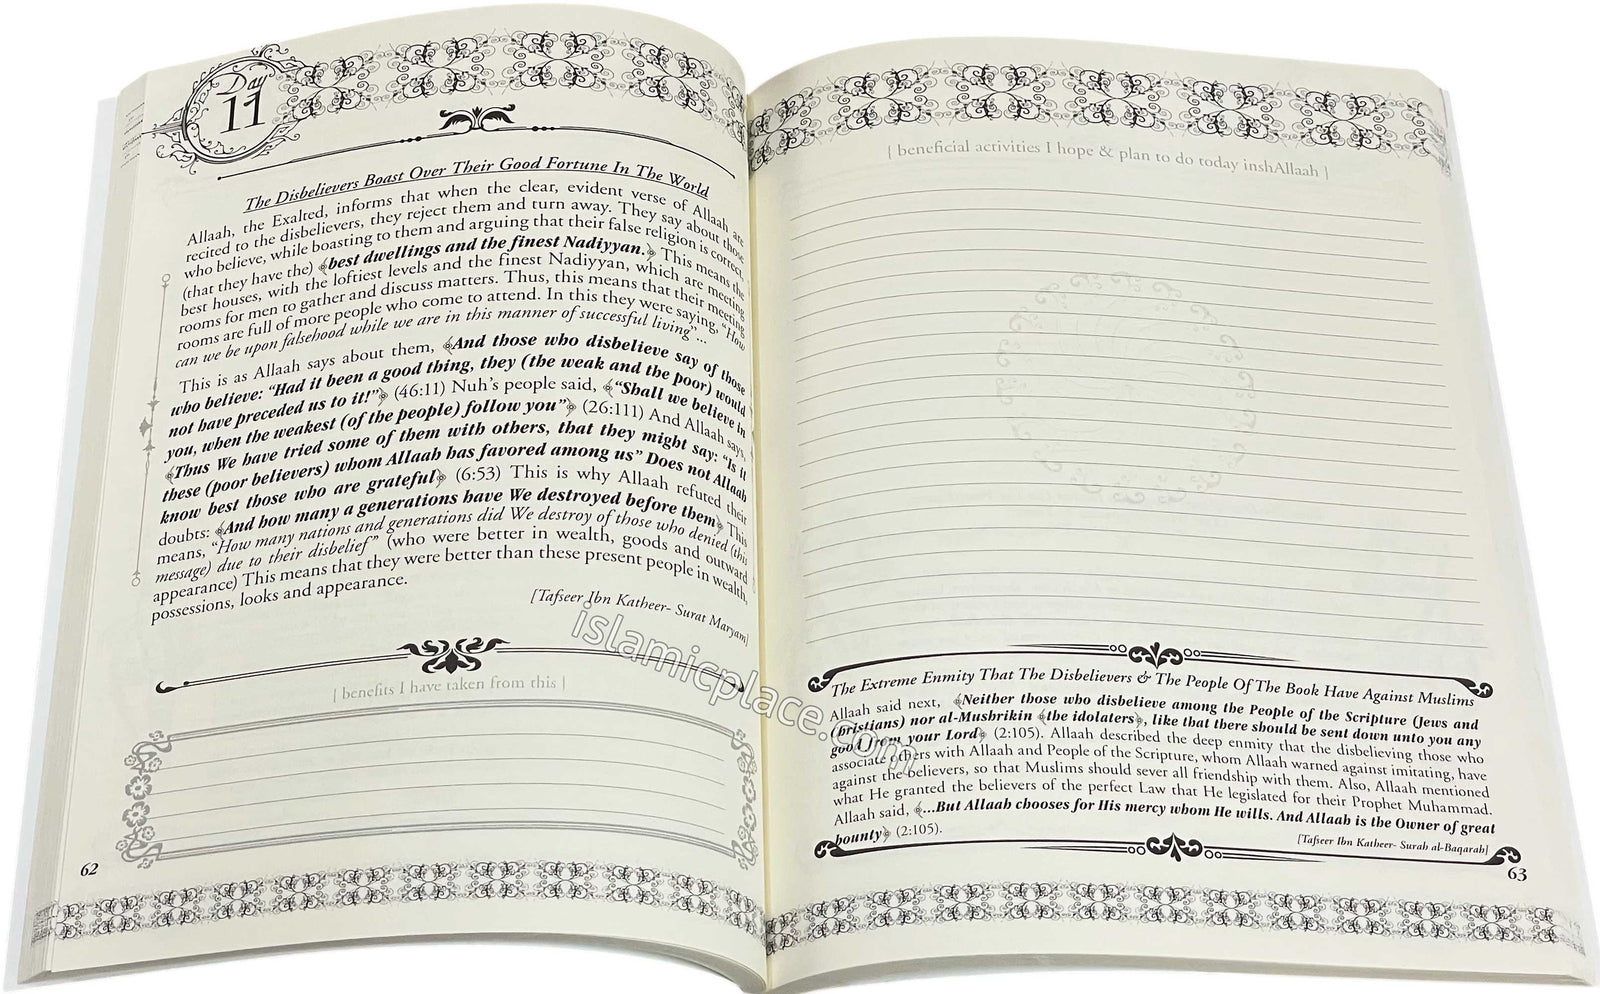 Day
11
The Disbelievers Boast Over Their Good Fortune In The World
Allaah, the Exalted, informs that when the clear, evident verse of Allaah are
recited to the disbelievers, they reject them and turn away. They say about those
who believe, while boasting to them and arguing that their false religion is correct,
(that they have the) ﴾best dwellings and the finest Nadiyyan.﴿ This means the
best houses, with the loftiest levels and the finest Nadiyyan, which are meeting
rooms for men to gather and discuss matters. Thus, this means that their meeting
rooms are full of more people who come to attend. In this they were saying, “How
can we be upon falsehood while we are in this manner of successful living”...
This is as Allaah says about them, ﴾And those who disbelieve say of those
who believe: “Had it been a good thing, they (the weak and the poor) would
not have preceded us to it!”﴿ (46:11) Nuh’s people said, ﴾“Shall we believe in
you, when the weakest (of the people) follow you”﴿ (26:111) And Allaah says,
﴾Thus We have tried some of them with others, that they might say: “Is it
these (poor believers) whom Allaah has favored among us” Does not Allaah
know best those who are grateful﴿ (6:53) This is why Allaah refuted their
doubts: ﴾And how many a generations have We destroyed before them﴿ This
means, “How many nations and generations did We destroy of those who denied (this
message) due to their disbelief” (who were better in wealth, goods and outward
appearance) This means that they were better than these present people in wealth,
possessions, looks and appearance.
[Tafseer Ibn Katheer- Surat Maryam]
[ benefits I have taken from this ]
62
[ beneficial activities I hope & plan to do today inshAllaah ]
The Extreme Enmity That The Disbelievers & The People Of The Book Have Against Muslims
Allaah said next, ﴾Neither those who disbelieve among the People of the Scripture (Jews and
Christians) nor al-Mushrikin ﴾the idolaters﴿, like that there should be sent down unto you any
good from your Lord﴿ (2:105). Allaah described the deep enmity that the disbelieving those who
associate others with Allaah and People of the Scripture, whom Allaah warned against imitating, have
against the believers, so that Muslims should sever all friendship with them. Also, Allaah mentioned
what He granted the believers of the perfect Law that He legislated for their Prophet Muhammad.
Allaah said, ﴾...But Allaah chooses for His mercy whom He wills. And Allaah is the Owner of great
bounty﴿ (2:105).
[Tafseer Ibn Katheer- Surah al-Baqarah]
63
islamicplace.com